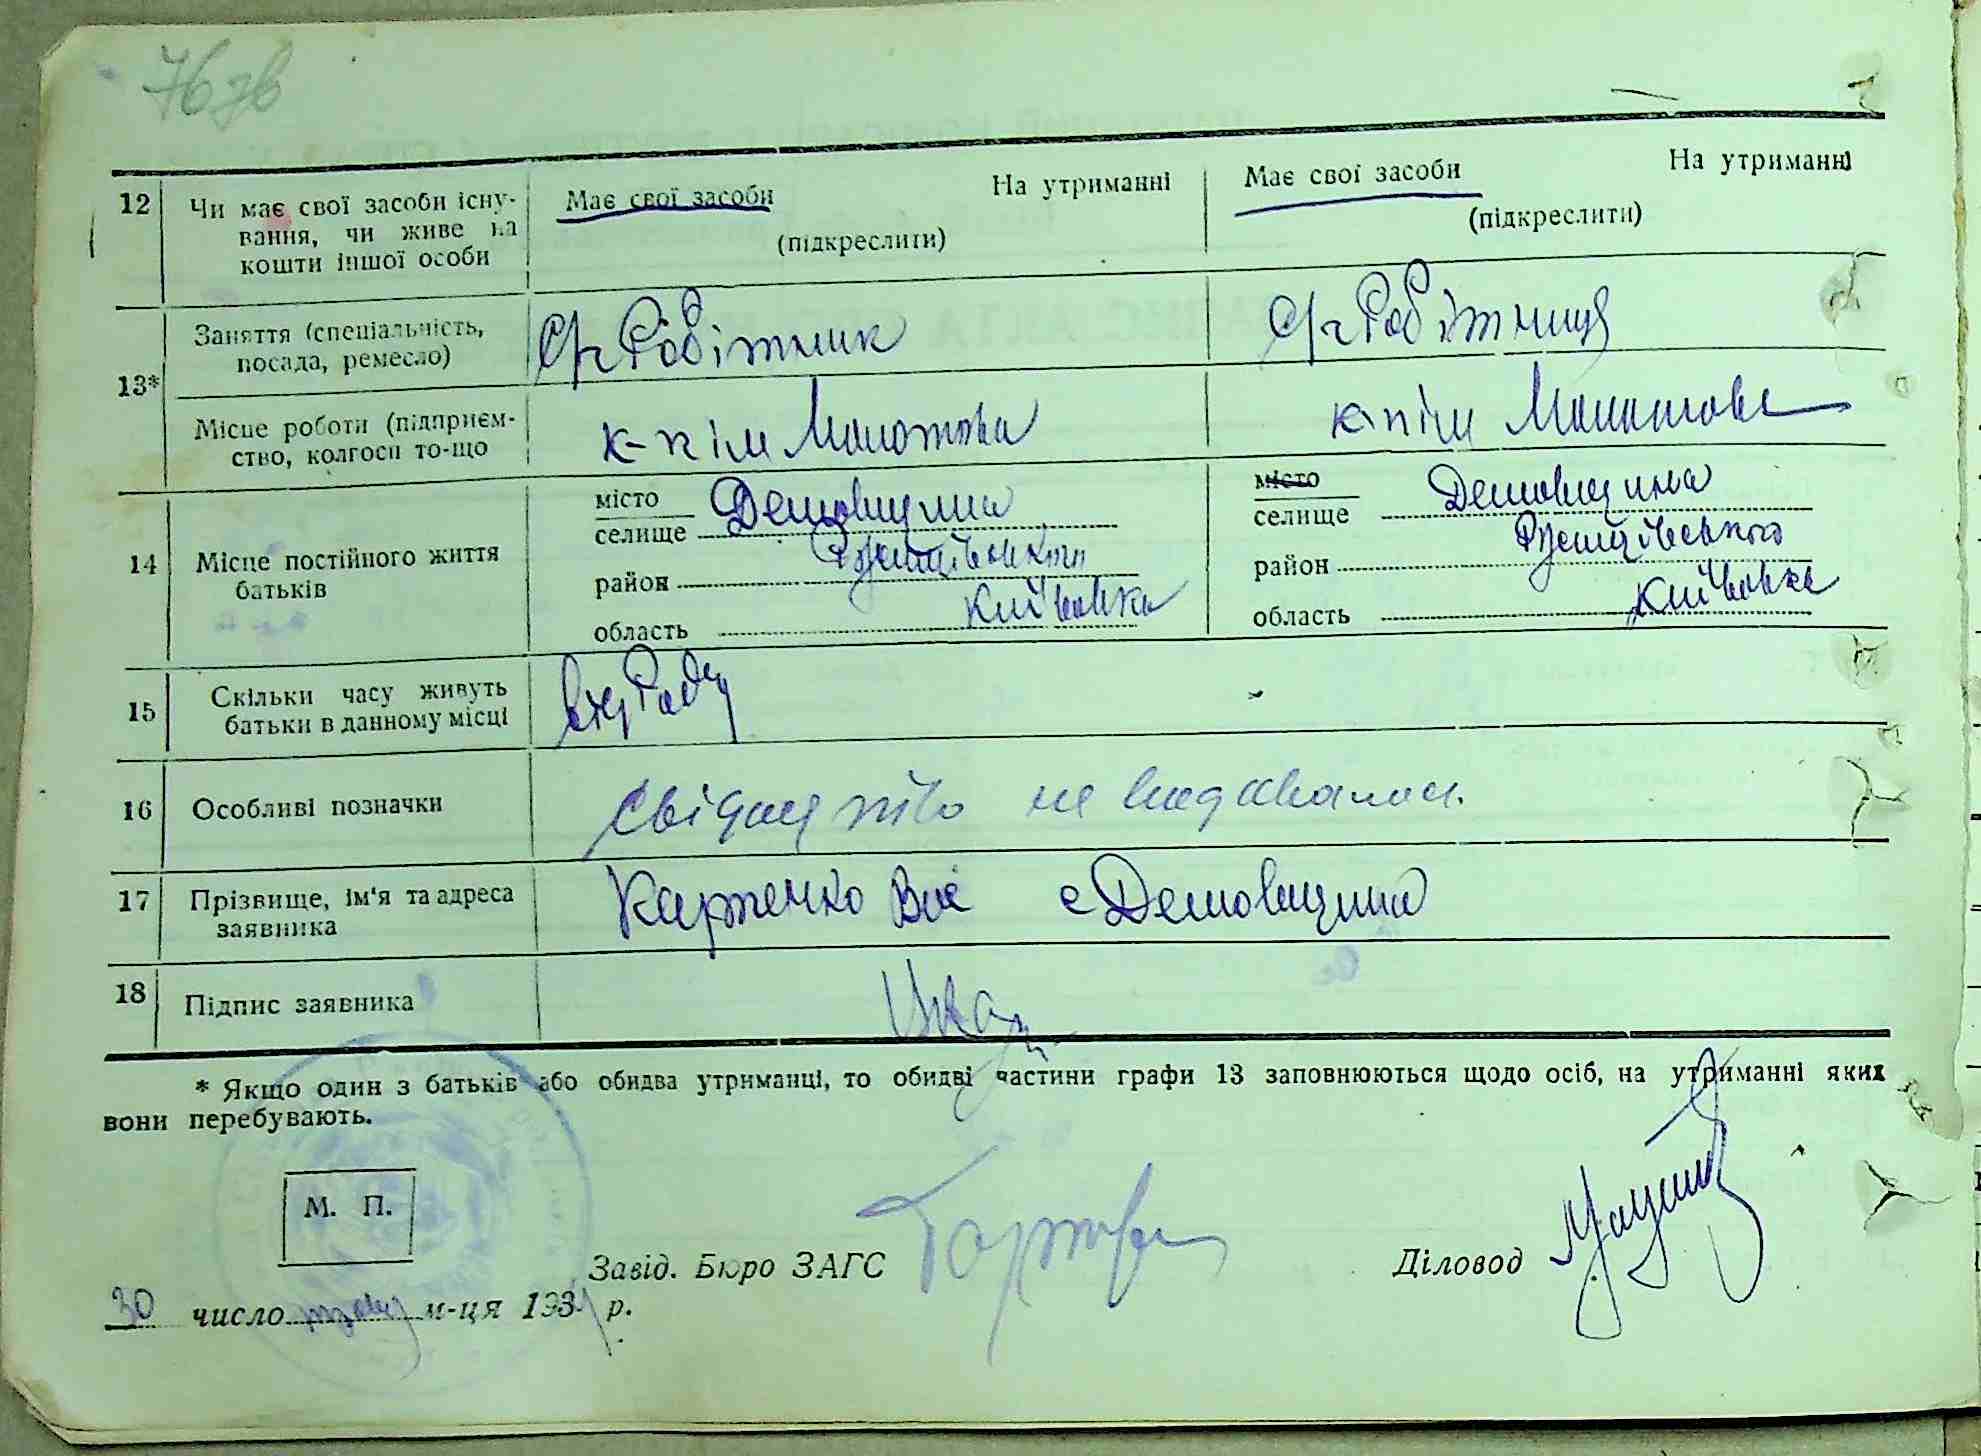 76 зв
12 Чи має свої засоби існу-
вання, чи живе на
кошти іншої особи
Має свої засоби На утриманні
(підкреслити)
Має свої засоби На утриманні
(підкреслити)
13* Заняття (спеціальність,
посада, ремесло)
С/г Робітник
С/г Робітниця
Місце роботи (підприєм-
ство, колгосп то-що
к-п ім Молотова
к-п ім Молотова
14 Місце постійного життя
батьків
місто
селище Демовщина
район
область Київська
місто
селище Демовщина
район
область Київська
15 Скільки часу живуть
батьки в данному місці
16 Особливі позначки
Свідоцтво не видавалось.
17 Прізвище, ім'я та адреса
заявника
с Демовщина
18 Підпис заявника
* Якщо один з батьків або обидва утриманці, то обидві частини графи 13 заповнюються щодо осіб, на утриманні яких
вони перебувають.
М. П.
Завід. Бюро ЗАГС
Діловод
30 число м-ця 193 р.